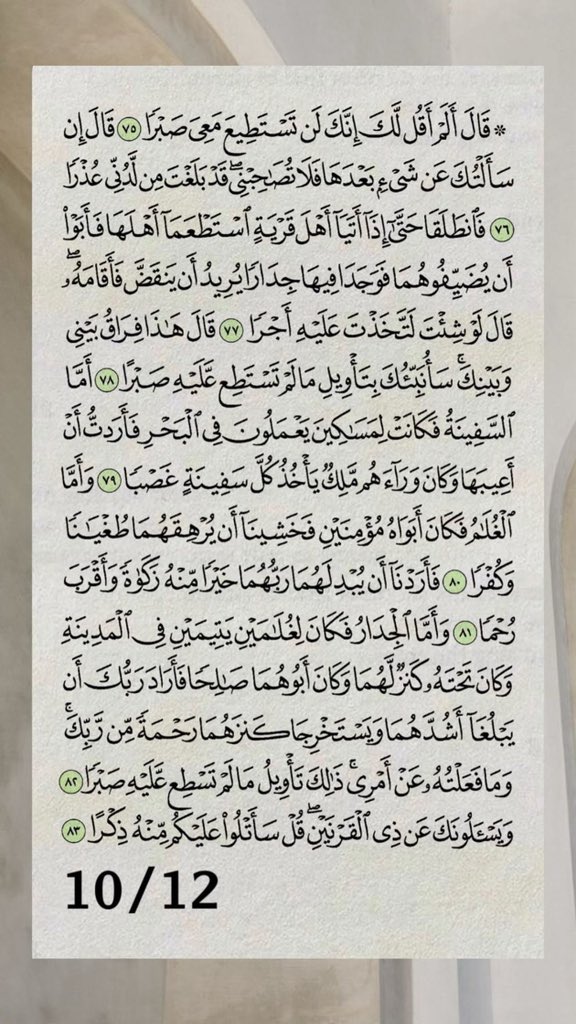 * قَالَ أَلَمْ أَقُل لَّكَ إِنَّكَ لَن تَسْتَطِيعَ مَعِىَ صَبْرًا ٧٥ قَالَ إِن
سَأَلْتُكَ عَن شَىْءٍۭ بَعْدَهَا فَلَا تُصَـٰحِبْنِى ۖ قَدْ بَلَغْتَ مِن لَّدُنِّى عُذْرًا
٧٦ فَٱنطَلَقَا حَتَّىٰٓ إِذَآ أَتَيَآ أَهْلَ قَرْيَةٍ ٱسْتَطْعَمَآ أَهْلَهَا فَأَبَوْا۟
أَن يُضَيِّفُوهُمَا فَوَجَدَا فِيهَا جِدَارًا يُرِيدُ أَن يَنقَضَّ فَأَقَامَهُۥ ۖ
قَالَ لَوْ شِئْتَ لَتَّخَذْتَ عَلَيْهِ أَجْرًا ٧٧ قَالَ هَـٰذَا فِرَاقُ بَيْنِى
وَبَيْنِكَ ۚ سَأُنَبِّئُكَ بِتَأْوِيلِ مَا لَمْ تَسْتَطِع عَّلَيْهِ صَبْرًا ٧٨ أَمَّا
ٱلسَّفِينَةُ فَكَانَتْ لِمَسَـٰكِينَ يَعْمَلُونَ فِى ٱلْبَحْرِ فَأَرَدتُّ أَنْ
أَعِيبَهَا وَكَانَ وَرَآءَهُم مَّلِكٌ يَأْخُذُ كُلَّ سَفِينَةٍ غَصْبًا ٧٩ وَأَمَّا
ٱلْغُلَـٰمُ فَكَانَ أَبَوَاهُ مُؤْمِنَيْنِ فَخَشِينَآ أَن يُرْهِقَهُمَا طُغْيَـٰنًا
وَكُفْرًا ٨٠ فَأَرَدْنَآ أَن يُبْدِلَهُمَا رَبُّهُمَا خَيْرًا مِّنْهُ زَكَوٰةً وَأَقْرَبَ
رُحْمًا ٨١ وَأَمَّا ٱلْجِدَارُ فَكَانَ لِغُلَـٰمَيْنِ يَتِيمَيْنِ فِى ٱلْمَدِينَةِ
وَكَانَ تَحْتَهُۥ كَنزٌ لَّهُمَا وَكَانَ أَبُوهُمَا صَـٰلِحًا فَأَرَادَ رَبُّكَ أَن
يَبْلُغَآ أَشُدَّهُمَا وَيَسْتَخْرِجَا كَنزَهُمَا رَحْمَةً مِّن رَّبِّكَ ۚ
وَمَا فَعَلْتُهُۥ عَنْ أَمْرِى ۚ ذَٰلِكَ تَأْوِيلُ مَا لَمْ تَسْطِع عَّلَيْهِ صَبْرًا ٨٢
وَيَسْـَٔلُونَكَ عَن ذِى ٱلْقَرْنَيْنِ ۖ قُلْ سَأَتْلُوا۟ عَلَيْكُم مِّنْهُ ذِكْرًا ٨٣
10/12